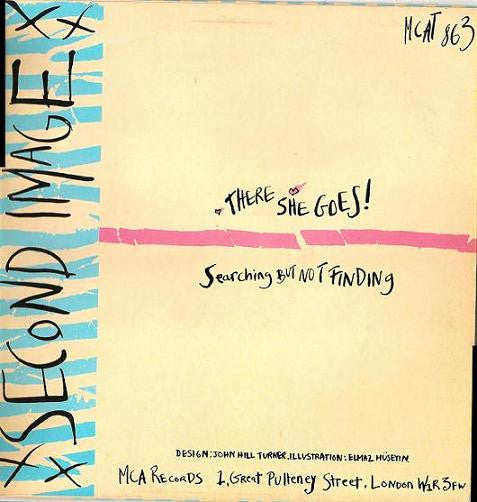 XX SECOND IMAGE XX
MCAT 863
THERE SHE GOES!
Searching BUT NOT FINDING
DESIGN: JOHN HILL TURNER. ILLUSTRATION: ELMAZ HÜSEYIN
MCA RECORDS 1, Great Pulteney Street. London W1R 3FW